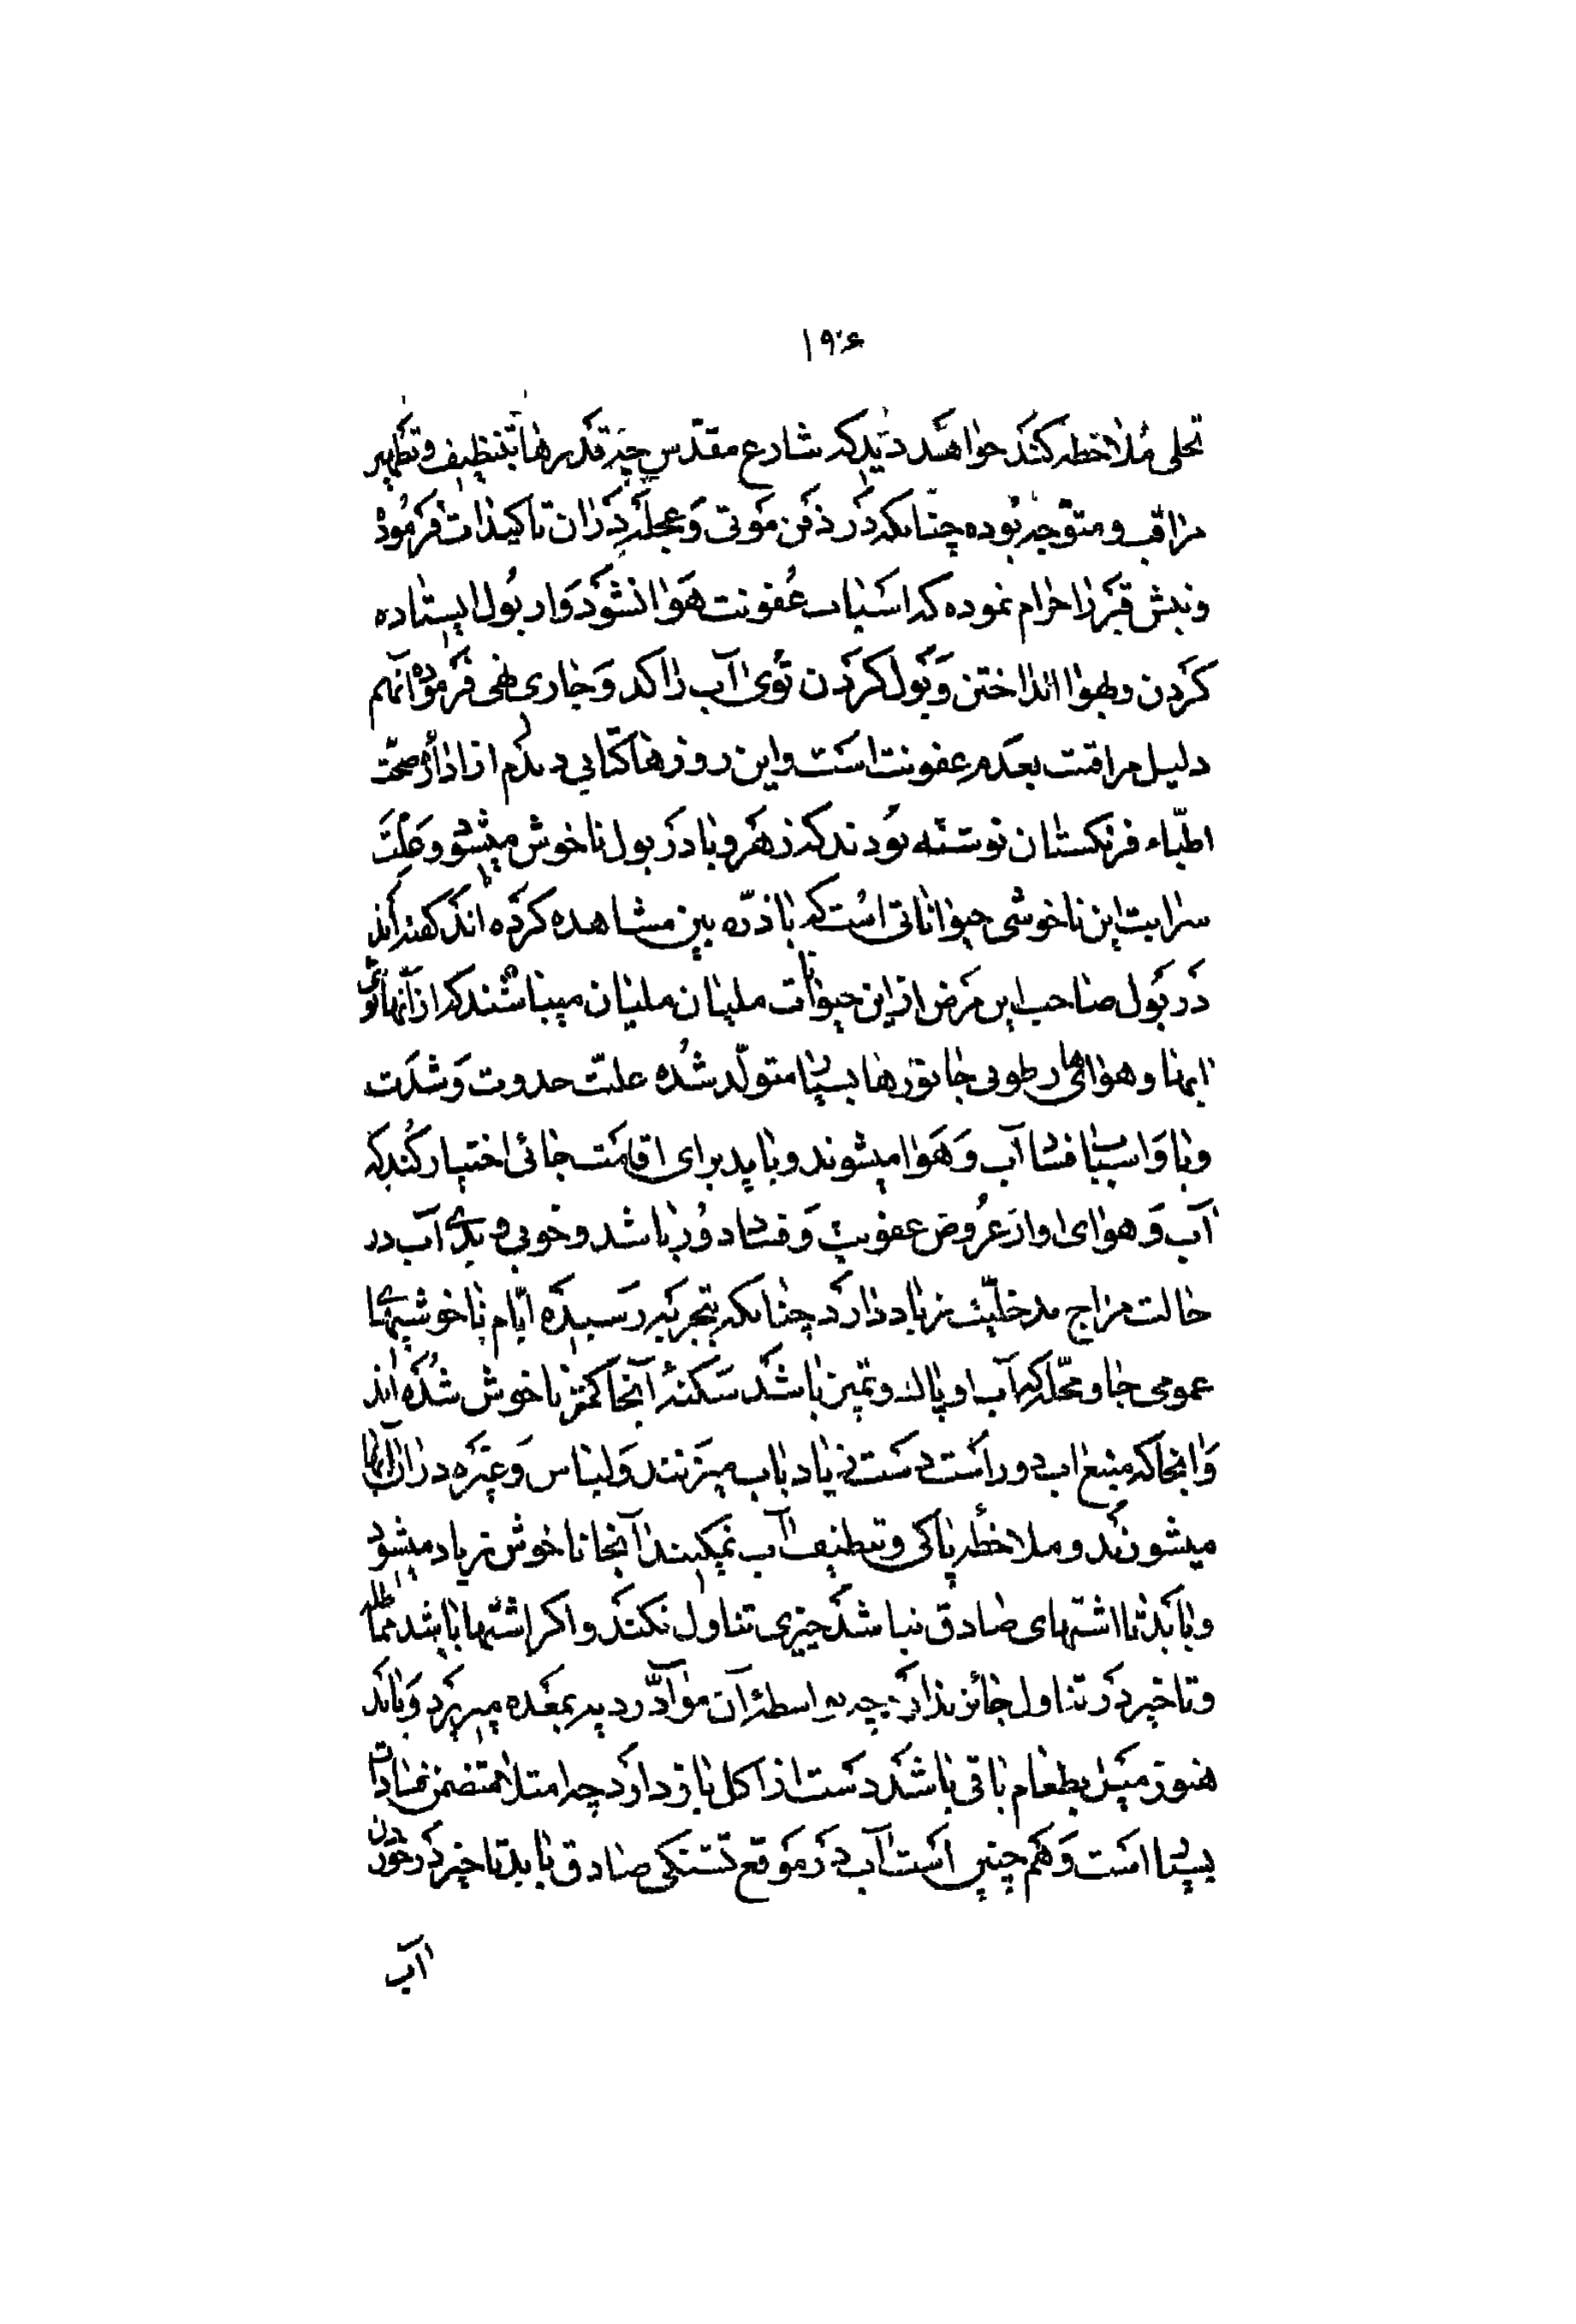 ۱۹۶
تحلی ملاحظه کنند خواهند دید که شارع مقدس چه قدرها بتنظیف و تطهیر
مراقب و متوجه بوده چنانکه در دفن موتی و عجله در ان تاکیدات فرموده
و نبش قبر را حرام نموده که اسباب عفونت هوا نشود و از بول ایستاده
کردن و بهوا انداختن و بول کردن توی آب راکد و جاری نهی فرموده آنهم
دلیل مراقبت بعدم عفونت است و این روزها کتابی دیدم از اداره صحت
اطبّاء فرنگستان نوشته بودند که زهر وبا در بول ناخوش میشود و علت
سرایت این ناخوشی حیواناتی است که با ذره بین مشاهده کرده اند گفته اند
در بول صاحب این مرض از این حیوانات ملیان ملیان میباشند که از آنها توی
ابها و هواهای رطوبی جانورها بسیار متولد شده علت حدوت و شدت
وبا و اسباب فساد آب و هوا میشوند و باید برای اقامت جائی اختیار کند که
آب و هوای او از عروض عفونت و فساد دور باشد و خوبی و بدی آب در
حالت مزاج مدخلیت زیاد دارد چنانکه بتجربه رسیده ایام ناخوشیهای
عمومی جا و محله که آب او پاک و تمیز باشد سکنهٔ آنجا کمتر ناخوش شده اند
و انجا که منبع اب دور است دست زیاد باب میزنند و لباس و غیره در ان آبها
میشورند و ملاحظه پاکی و تنظیف آب نمیکنند آنجا ناخوش زیاد میشود
و باید تا اشتهای صادق نباشد چیزی تناول نکند و اکر اشتها باشد مماطله
و تاخیر در تناول جائز ندارد چه بواسطهٔ آن موادّ ردیه بمعده میریزد و باید
هنوز میل بطعام باقی باشد دست از اکل باز دارد چه امتلا متضمن فسادات
بسیار است و هم چنین است آب در موقع تشنکی صادق باید تاخیر در خوردن
آب